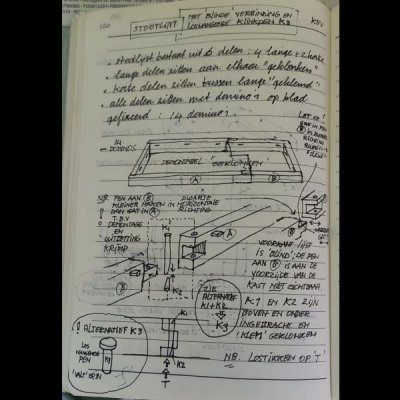 120
STOOTLIJST
MET BLINDE VERBINDING EN
LOSHANGENDE KLINKPEN K3
• stootlijst bestaat uit 6 delen: 4 lange + 2 korte
• lange delen zitten aan elkaar "geklonken"
• korte delen zitten tussen lange "geklemd"
• alle delen zitten met domino's op blad
gefixeerd: 14 domino's.
LET OP!
14
DOMINOS
DEMONTABEL "GEKLONKEN"
A
B
NB. PEN AAN B DWARS
KLEINER MAKEN IN HORIZONTALE
! DAN GAT IN A RICHTING
T.B.V
DEMONTAGE
EN
UITZETTING
KRIMP
A
B
K2
VOORKANT LIJST
IS 'BLIND', DE PEN
AAN B IS AAN DE
VOORZIJDE VAN DE
KAST NIET ZICHTBAAR
ZIE
ALTERNATIEF
K1 + K2
K3
K1 EN K2 ZIJN
BOVEN EN ONDER
INGEBRACHT EN
KLEM GEKLONKEN
NB. LOSTIKKEN OP 'T'
! ALTERNATIEF K3
LOS
HANGENDE
PEN
'VALT' ERIN
K3
K1
K2
T